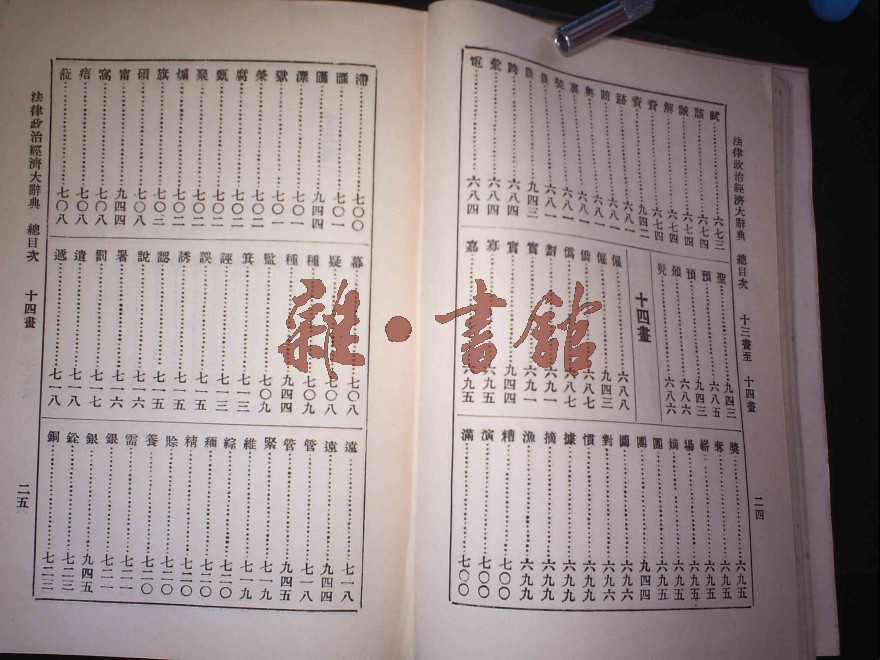 法律政治經濟大辭典 總目次 十三畫至 十四畫
二四
試……六七三
該……六七四
賊……六七四
解……六七四
資……六七四
賓……九四二
跡……六八一
賄……六八一
奧……六八一
裏……六八一
裝……六八一
農……六八一
農……九四三
跨……六八四
彙……六八四
電……六八四
聖……九四三
預……六八五
預……九四三
頒……六八六
髡……六八六
十四畫
僱……六八八
僱……九四三
僑……六八七
僞……六八七
劃……六九一
實……六九一
實……九四四
寡……六九五
嘉……六九五
獎……六九五
奪……六九五
嶄……六九五
場……六九五
嫡……六九五
團……六九五
團……九四四
圖……六九六
對……六九六
慣……六九九
據……六九九
摘……六九九
漁……六九九
糟……七〇〇
演……七〇〇
滿……七〇〇
滯……七〇〇
匯……七〇一
匯……九四四
漂……七〇一
獄……七〇一
榮……七〇二
腐……七〇二
甄……七〇二
聚……七〇二
煽……七〇二
旗……七〇三
碩……七〇八
甯……九四四
窩……七〇八
瘖……七〇八
蒞……七〇八
幕……七〇八
疑……七〇八
種……七〇九
種……九四四
監……七〇九
箕……七一三
誣……七一三
誤……七一五
誘……七一五
認……七一五
說……七一六
署……七一六
罰……七一七
遣……七一八
遞……七一八
遠……七一八
遠……九四四
管……七一八
管……九四五
緊……七一九
維……七一九
綜……七二〇
緬……七二〇
精……七二〇
賒……七二〇
養……七二〇
需……七二一
銀……七二一
銀……九四五
銓……七二三
銅……七二三
法律政治經濟大辭典 總目次 十四畫
二五
雜·書館